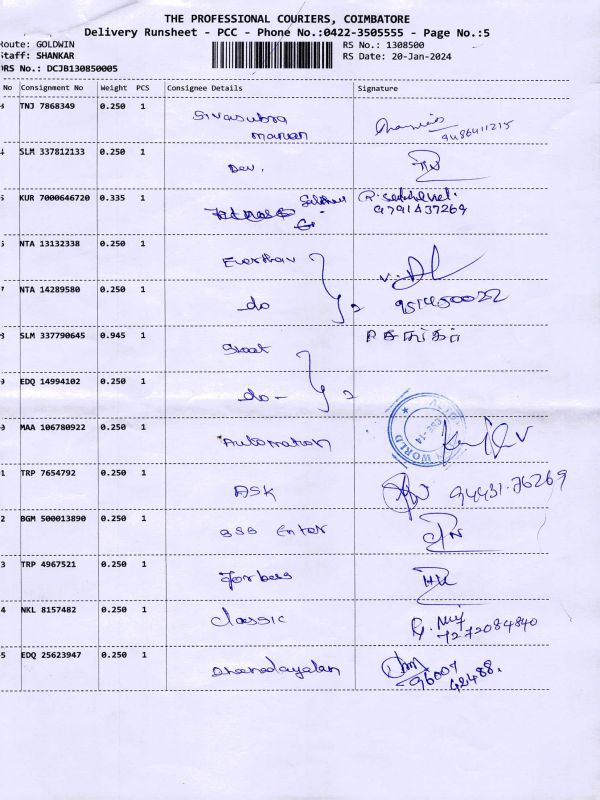 THE PROFESSIONAL COURIERS, COIMBATORE
Delivery Runsheet - PCC - Phone No.:0422-3505555 - Page No.:5
Route: GOLDWIN
RS No.: 1308500
Staff: SHANKAR
RS Date: 20-Jan-2024
DRS No.: DCJB130850005
No Consignment No Weight PCS Consignee Details Signature
TNJ 7868349 0.250 1 Sivasubra
manian
9486411215
SLM 337812133 0.250 1 Dev.
KUR 7000646720 0.335 1
9791437269
NTA 13132338 0.250 1
7 NTA 14289580 0.250 1 do 2
SLM 337790645 0.945 1
EDQ 14994102 0.250 1 do - 2
MAA 106780922 0.250 1 Automation
WORLD
1 TRP 7654792 0.250 1 ASK 94431.76269
2 BGM 500013890 0.250 1 Enter
3 TRP 4967521 0.250 1 Forbes
4 NKL 8157482 0.250 1 classic
7272084840
5 EDQ 25623947 0.250 1 Dhanadayalan
96007
42488.